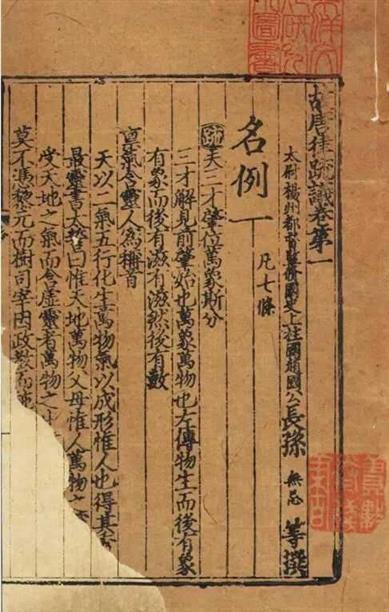 故唐律疏議卷第一
太尉揚州都督監修國史上柱國趙國公長孫無忌等撰
名例一 凡七條
疏夫三才肇位萬象斯分
三才解見前肇始也萬象萬物也左傳物生而後有象
有象而後有滋有滋然後有數
稟氣含靈人為稱首
天以二氣五行化生萬物氣以成形惟人也得其秀
最靈書太誓曰惟天地萬物父母惟人萬物之
受天地之氣而含虛靈者萬物之
莫不憑黎元而樹司宰因政教